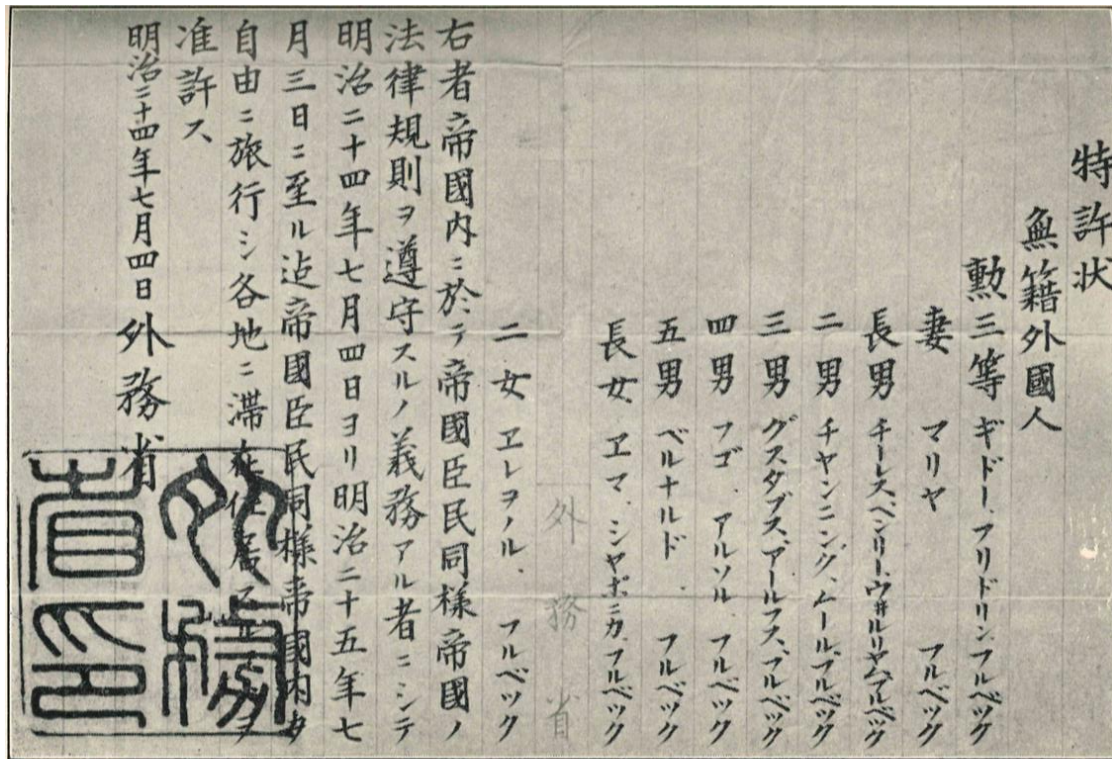 特許状
無籍外國人
勲三等 ギドー、フリドリン、フルベック
妻 マリヤ フルベック
長男 チーレス、ヘンリー、ウ井ルリヤム、フルベック
二男 チヤンニング、ムール、フルベック
三男 グスタブス、アールフス、フルベック
四男 フゴ、アルソル、フルベック
五男 ベルナルド、フルベック
長女 ヱマ、シヤポニカ、フルベック
外務省
二女 ヱレヲノル、フルベック
右者帝國内ニ於テ帝國臣民同様帝國ノ
法律規則ヲ遵守スルノ義務アル者ニシテ
明治二十四年七月四日ヨリ明治二十五年七
月三日ニ至ル迠帝國臣民同様帝國内ヲ
自由ニ旅行シ各地ニ滞在住居スルヿヲ
准許ス
明治二十四年七月四日 外務省
外務省印